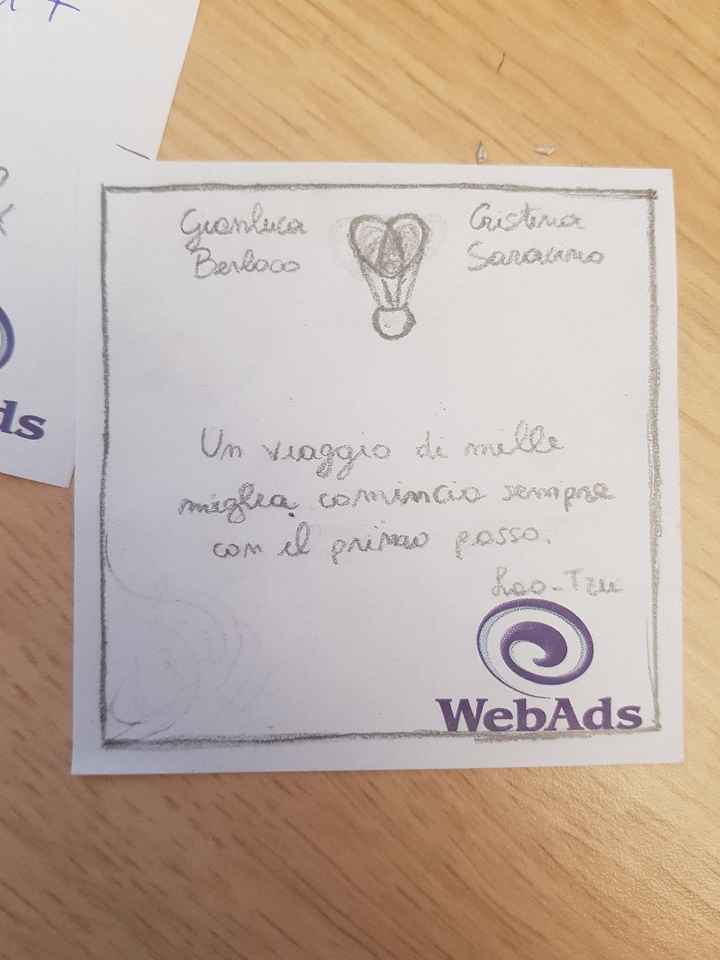 Gianluca Cristina
Berloco Saracino
Un viaggio di mille
miglia comincia sempre
con il primo passo.
Lao-Tzu
WebAds
ds